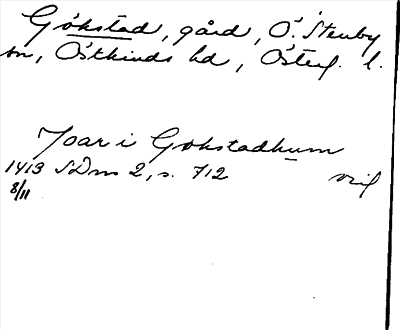 Gökstad, gård, Ö. Stenby
sn, Östkinds hd, Österg. l.
Joar i Gokstadhum
1413 SDns 2, s. 712 orig
8/11